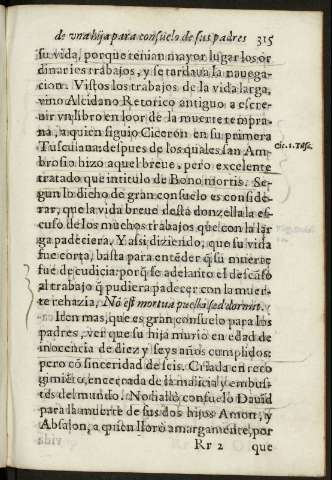 de vna hija para consuelo de sus padres 315
su vida, porque tenian mayor lugar los or
dinarios trabajos, y se tardaua la nauega-
cion. Vistos los trabajos de la vida larga,
vino Alcidano Retorico antiguo a escre-
uir vn libro en loor de la muerte tempra-
na, a quien siguio Ciceron en su primera
Cic. 1. Tusc.
Tusculana: despues de los quales san Am-
brosio hizo aquel breue, pero excelente
tratado que intitulo de Bono mortis. Se-
gun lo dicho de gran consuelo es conside-
rar, que la vida breue desta donzella la es-
cusò de los muchos trabajos que con la lar
ga padeciera. Y assi diziendo, que su vida
fue corta, basta para entēder q̃ su muerte
fue de cudicia: porq̃ se adelanto el descāso
al trabajo q̃ pudiera padecer con la muer-
te rehazia, No est mortua puella sed dormit.
Iten mas, que es gran consuelo para los
padres, ver que su hija murio en edad de
inocencia de diez y seys años cumplidos:
pero cō sinceridad de seis. Criada en reco
gimiēto, encerrada de la malicia y embus-
tes del mundo. No hallò consuelo Dauid
para la muerte de sus dos hijos Amon, y
Absalon, a quien llorò amargamente, por
Rr 2 que